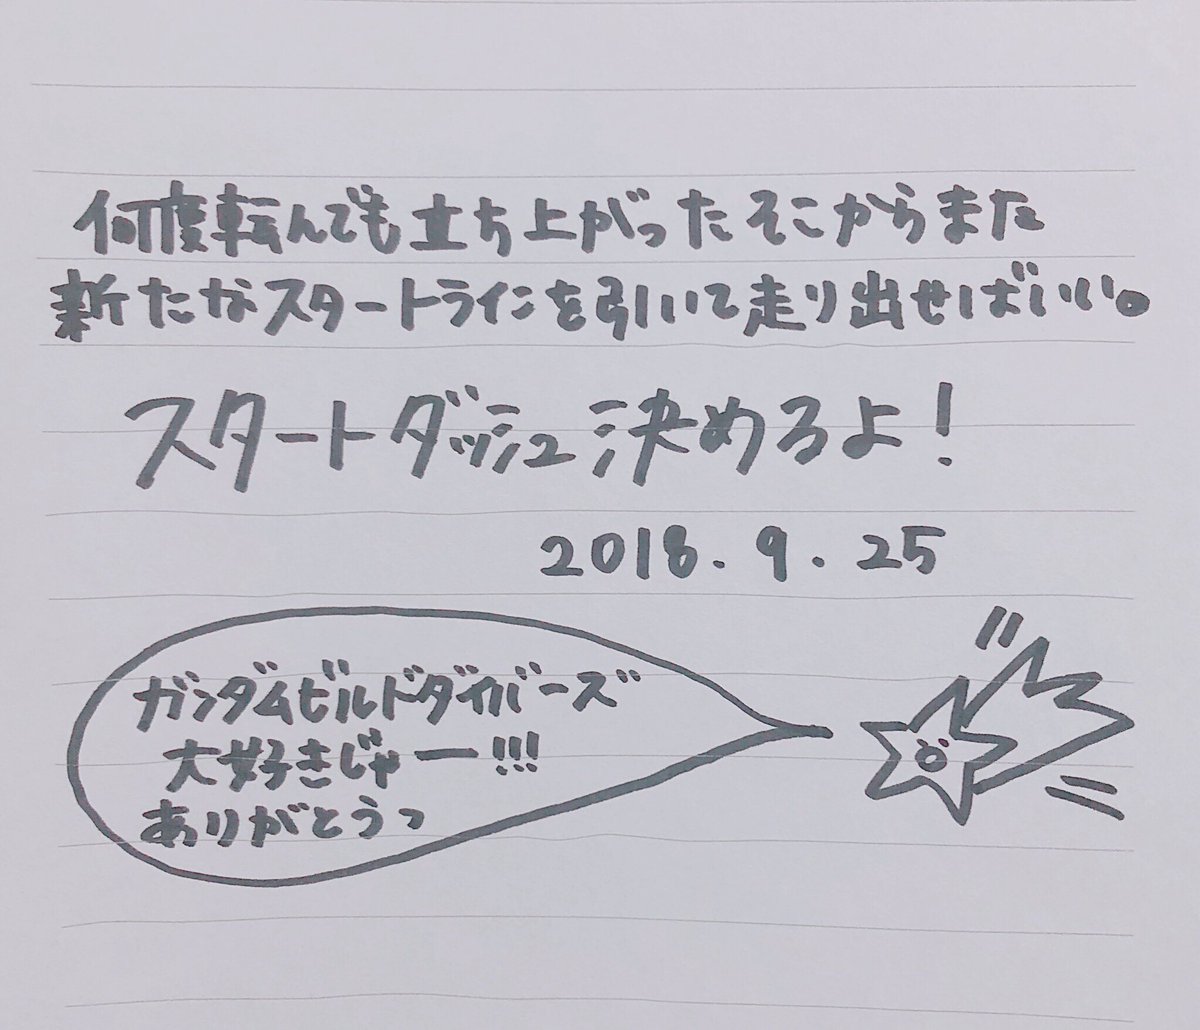 何度転んでも立ち上がったそこからまた
新たなスタートラインを引いて走り出せばいい。
スタートダッシュ決めるよ！
2018.9.25
ガンダムビルドダイバーズ
大好きじゃー!!!
ありがとうっ